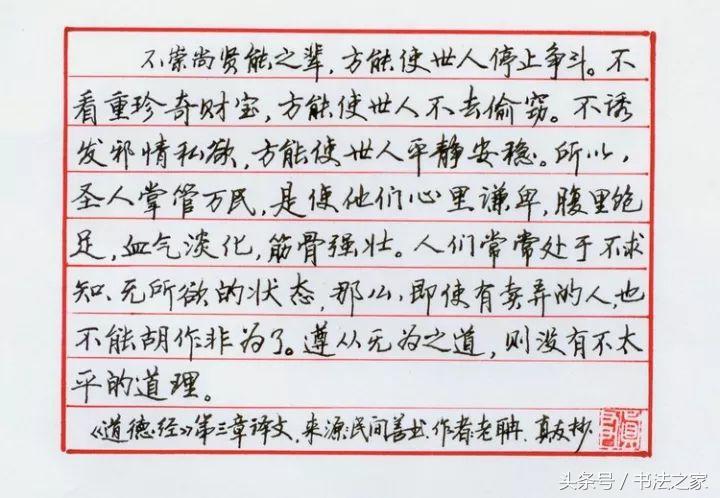 不崇尚贤能之辈，方能使世人停止争斗。不
看重珍奇财宝，方能使世人不去偷窃。不诱
发邪情私欲，方能使世人平静安稳。所以，
圣人掌管万民，是使他们心里谦卑，腹里饱
足，血气淡化，筋骨强壮。人们常常处于不求
知、无所欲的状态，那么，即使有卖弄的人，也
不能胡作非为了。遵从无为之道，则没有不太
平的道理。
《道德经》第三章译文，来源民间善书，作者老聃，真友抄
头条号／书法之家